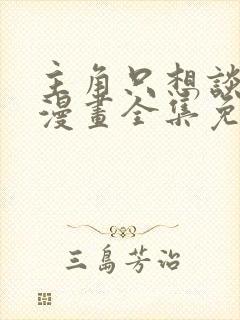 主角只想談
漫畫全集免
三島芳治